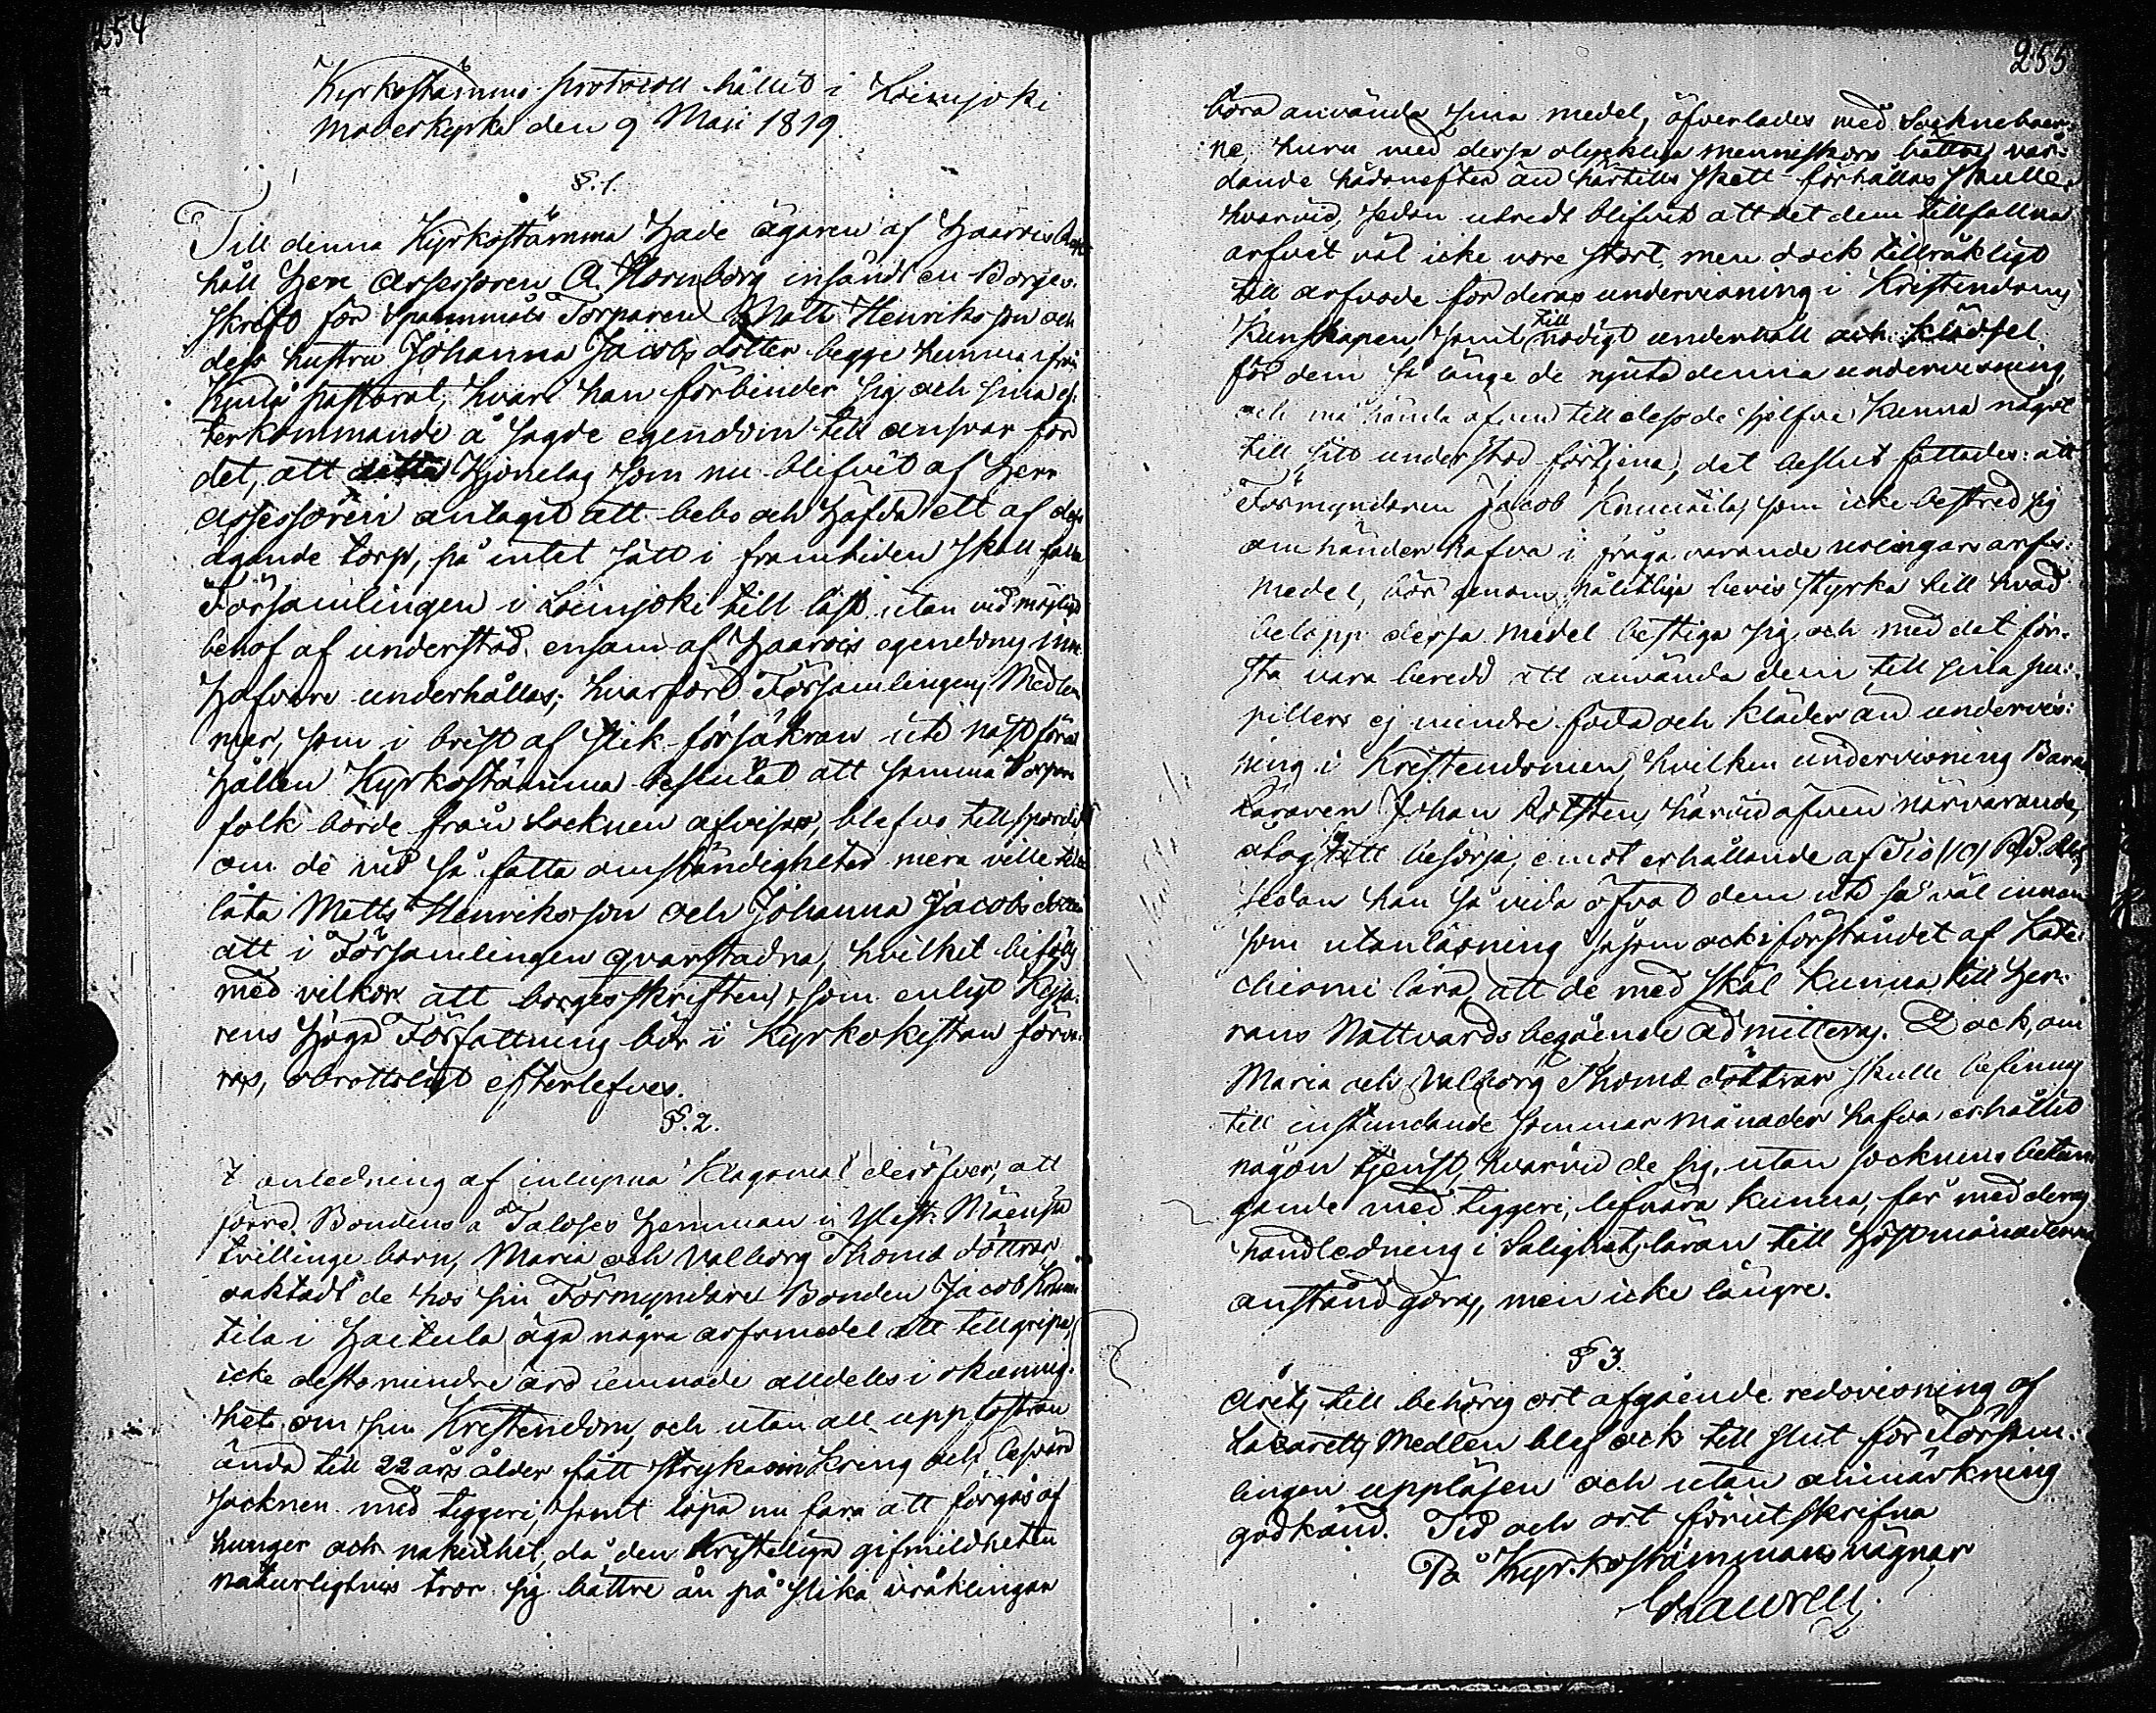 254
Kyrkostämmo protocoll hållit i Loimjoki
Moderkyrka den 9 Maii 1819.
§. 1.
Till denna Kyrkostämma Hade ägaren af Haarvis
håll Herr Assessoren A. Hornborg insändt en Borges-
skrift för Torparen Matts Henriksson och
dess hustru Johanna Jacobsdotter begge hemma ifrån
Kiulo pastorat, hvari han förbinder sig och sina ef-
terkommande å sagde egendom till ansvar för
det, att detta Hjonelag som nu blifvit af Herr
Assessoren antagit att bebo och häfda ett af dess
ägande torp, på intet sätt i framtiden skall falla
Församlingen i Loimjoki till last utan vid möjligt
behof af understöd ensam af Haarvis egendoms inne-
hafvare underhållas; hvarföre Församlingens Medlem-
mar, som i brist af slik försäkran uti näst förut
hållen Kyrkostämma beslutat att samma Torpare
folk borde från Socknen afvisas, blefvo tillspordt
om de vid så fatta omständigheter mera ville till-
låta Matts Henriksson och Johanna Jacobsdotter
att i Församlingen qvarstadna, hvilket beföljs
med vilkor att borgesskriften, som enligt Kejsa-
rens Höga Författning bör i Kyrkokistan förva-
ras, obrottsligt efterlefves.
§. 2.
I anledning af inlupna Klagomål deröfver, att
förre Bondens å Taloses Hemman i Mäenpä
tvillinge barn, Maria och Valborg Thomæ döttrar
oaktadt de hos sin Förmyndare Bonden Jacob Knuu-
tila i Haitula äga några arfsmedel att tillgripa,
icke destomindre äro lemnade alldeles i okunnig-
het om sin Kristendom, och utan all uppfostran
ända till 22 års ålder fått stryka omkring och besvära
socknen med tiggeri, samt löpa nu fara att förgås af
hunger och nakenhet, då den Kristeliga gifmildheten
naturligtvis tror sig bättre än på slika uräklingar
255
böra använda sina medel, öfverlades med Sockneboer-
ne, huru med dessa olyckliga menniskors bättre vår-
dande hädanefter än härtills skett förhållas skulle,
hvarvid, sedan utredt blifvit att det dem tillfallna
arfvet väl icke vore stort, men dock tillräkligt
till arfvode för deras undervisning i Kristendoms
Kunskapen, samt till nödigt underhåll och klädsel
för dem så länge de njuta denna undervisning,
och må hända äfven till dess de sjelfve kunna något
till sitt understöd förtjena, det beslut fattades: att
Förmyndaren Jacob Knuutila, som icke bestred sig
om händer hafva i fråga varande uslingars arfs-
medel, bör genom pålitliga bevis styrka till hvad
belopp dessa medel bestiga sig och med det för-
sta vara beredd att använda dem till sina pu-
piller ej mindre föda och kläder än undervis-
ning i Kristendomen, hvilken undervisning Barna
Läraren Johan härvid äfven närvarande,
åtog sig att besörja, emot erhållande af Tio (10)
sedan han så vida öfvat dem uti så väl innan
som utanläsning såsom ock i förståndet af Kate-
chismi lära, att de med skäl kunna till Her-
rans Nattvards begående admitteras. Dock, om
Maria och Valborg Thomæ döttrar skulle befinnas
till instundande sommar månader hafva erhållit
någon tjenst, hvarvid de sig, utan socknens betun-
gande med tiggeri, lifnära kunna, får med deras
handledning i Salighets läran till Höstmånaderna
anstånd göras, men icke längre.
§ 3.
Årets till behörig ort afgående redovisning af
Lazaretts Medlen blef ock till slut för Försam-
lingen uppläsen och utan anmärkning
godkänd. Tid och ort förut skrifna
På Kyrkostämmans vägnar